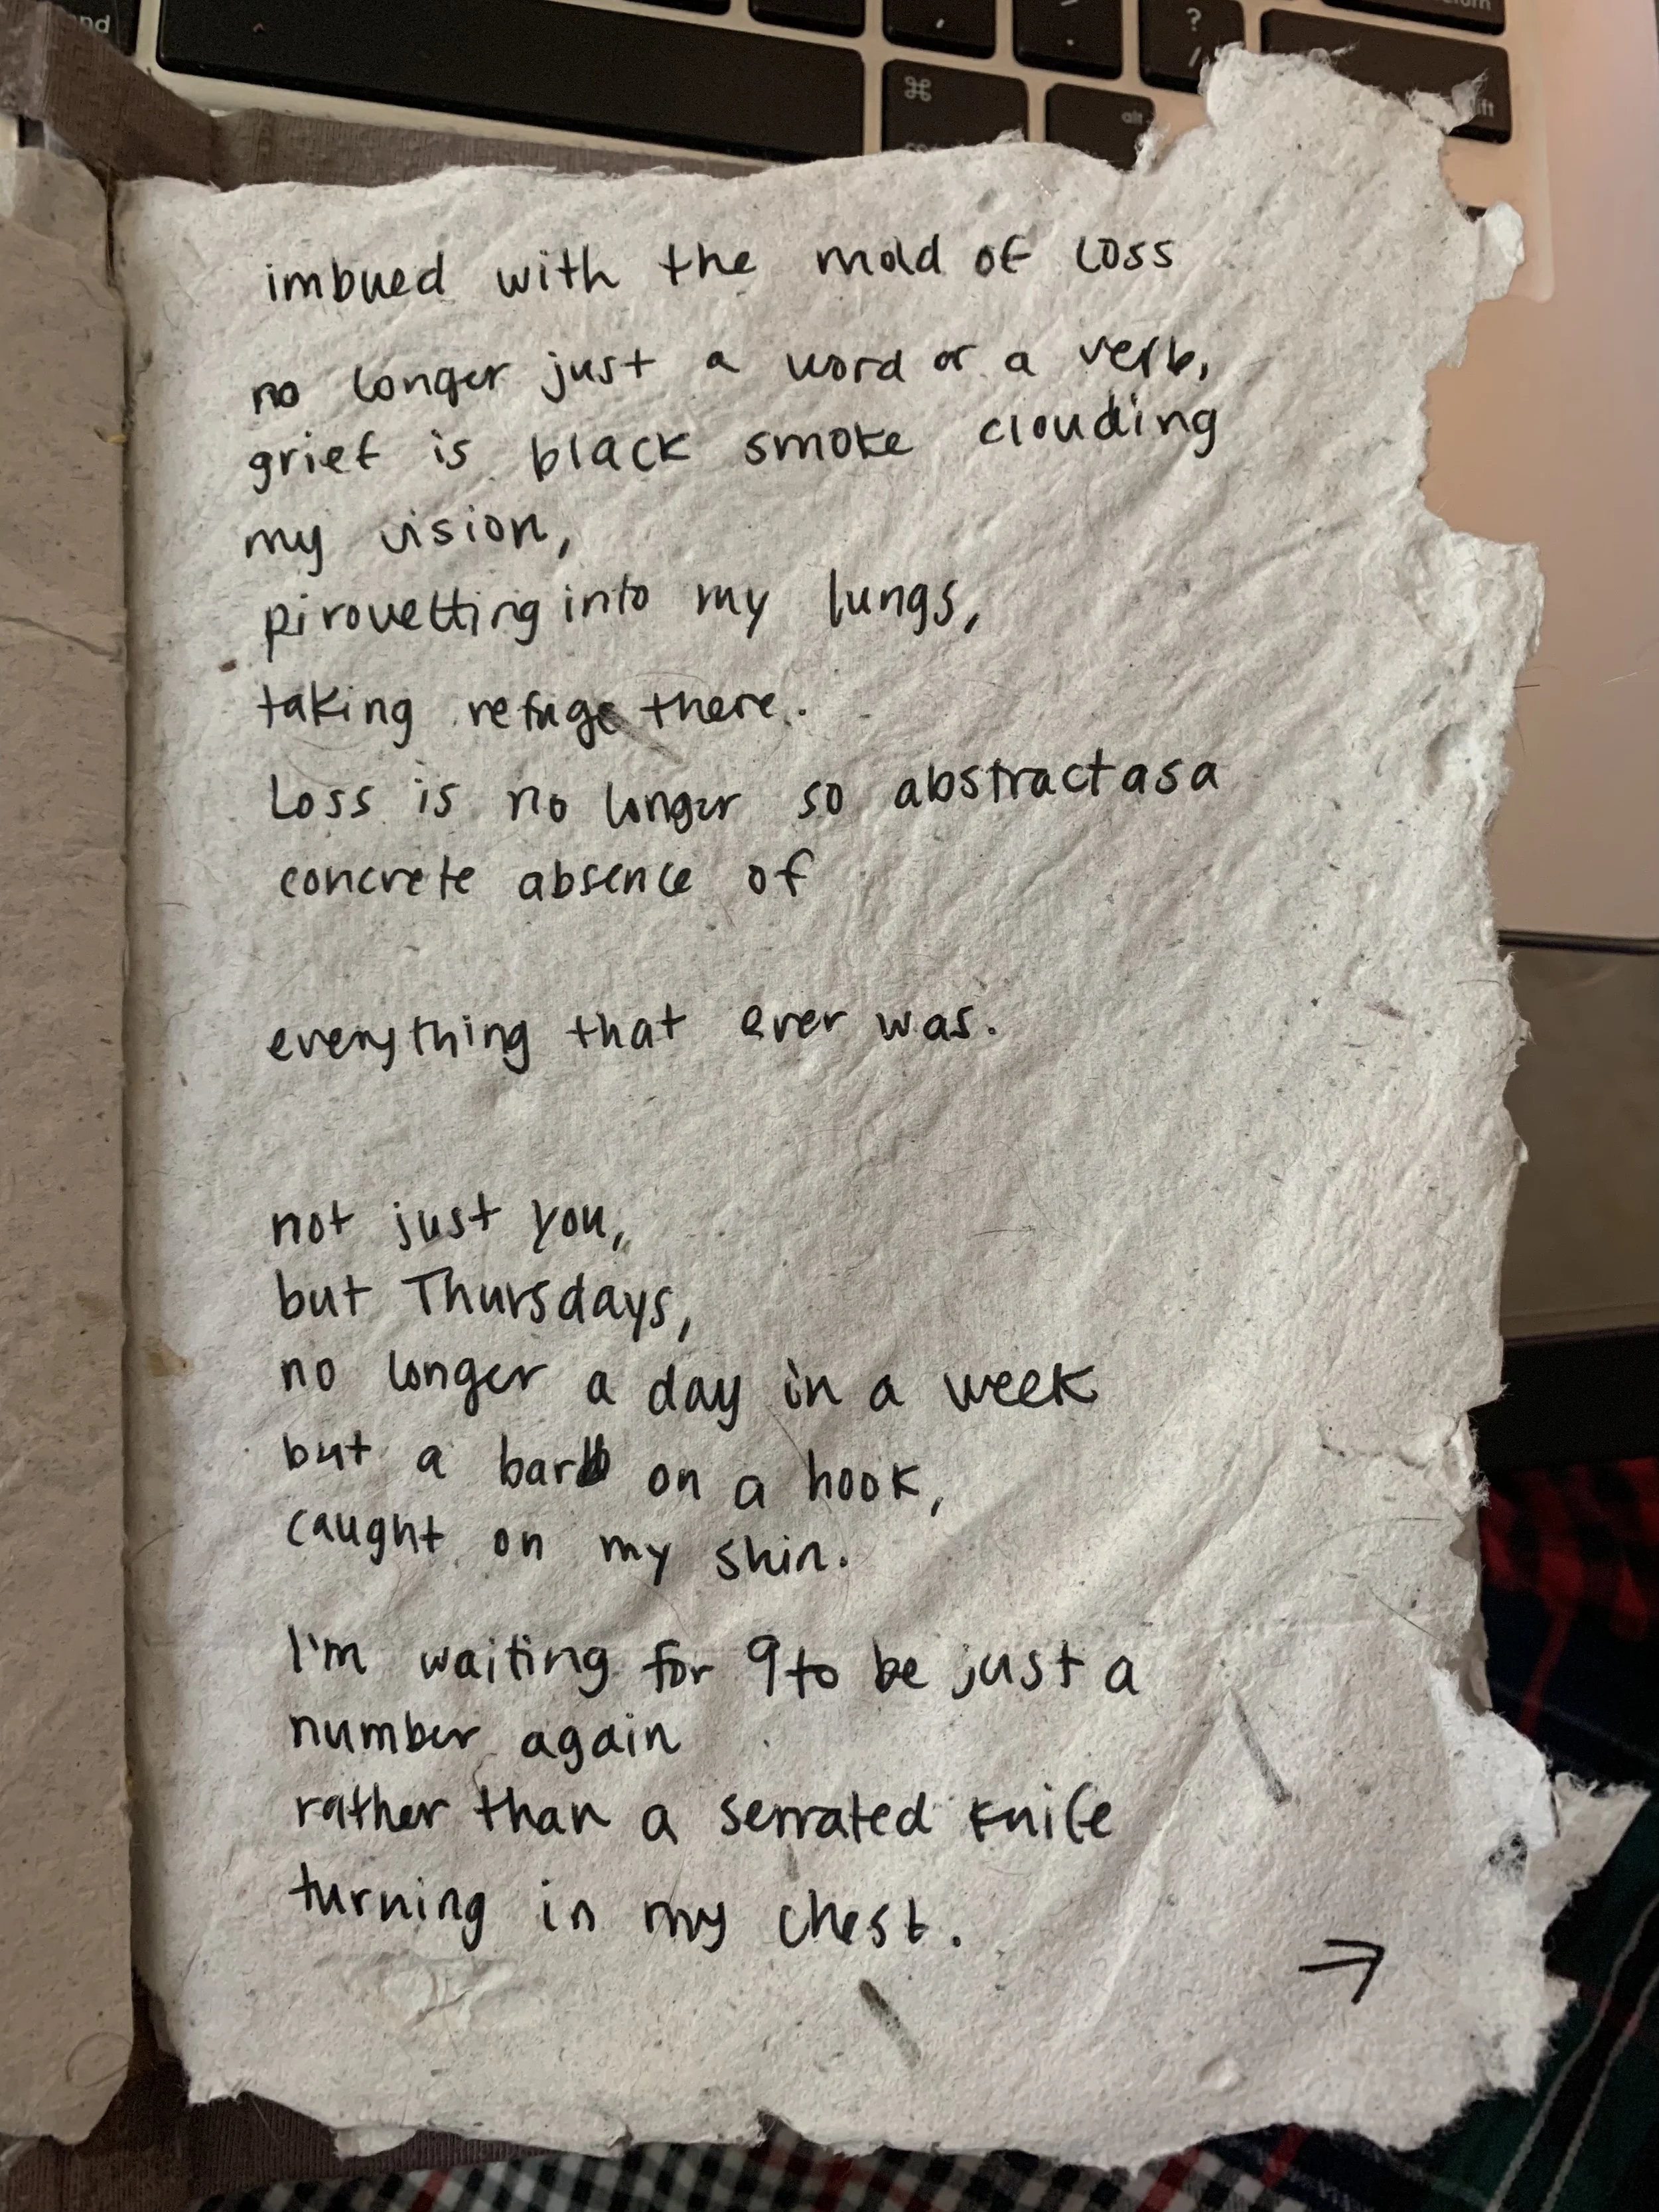 imbued with the mold of loss
no longer just a word or a verb,
grief is black smoke clouding
my vision,
pirouetting into my lungs,
taking refuge there.
Loss is no longer so abstract as a
concrete absence of
everything that ever was.
not just you,
but Thursdays,
no longer a day in a week
but a barb on a hook,
caught on my skin.
I'm waiting for 9 to be just a
number again
rather than a serrated knife
turning in my chest.
→
?
/
⌘
alt